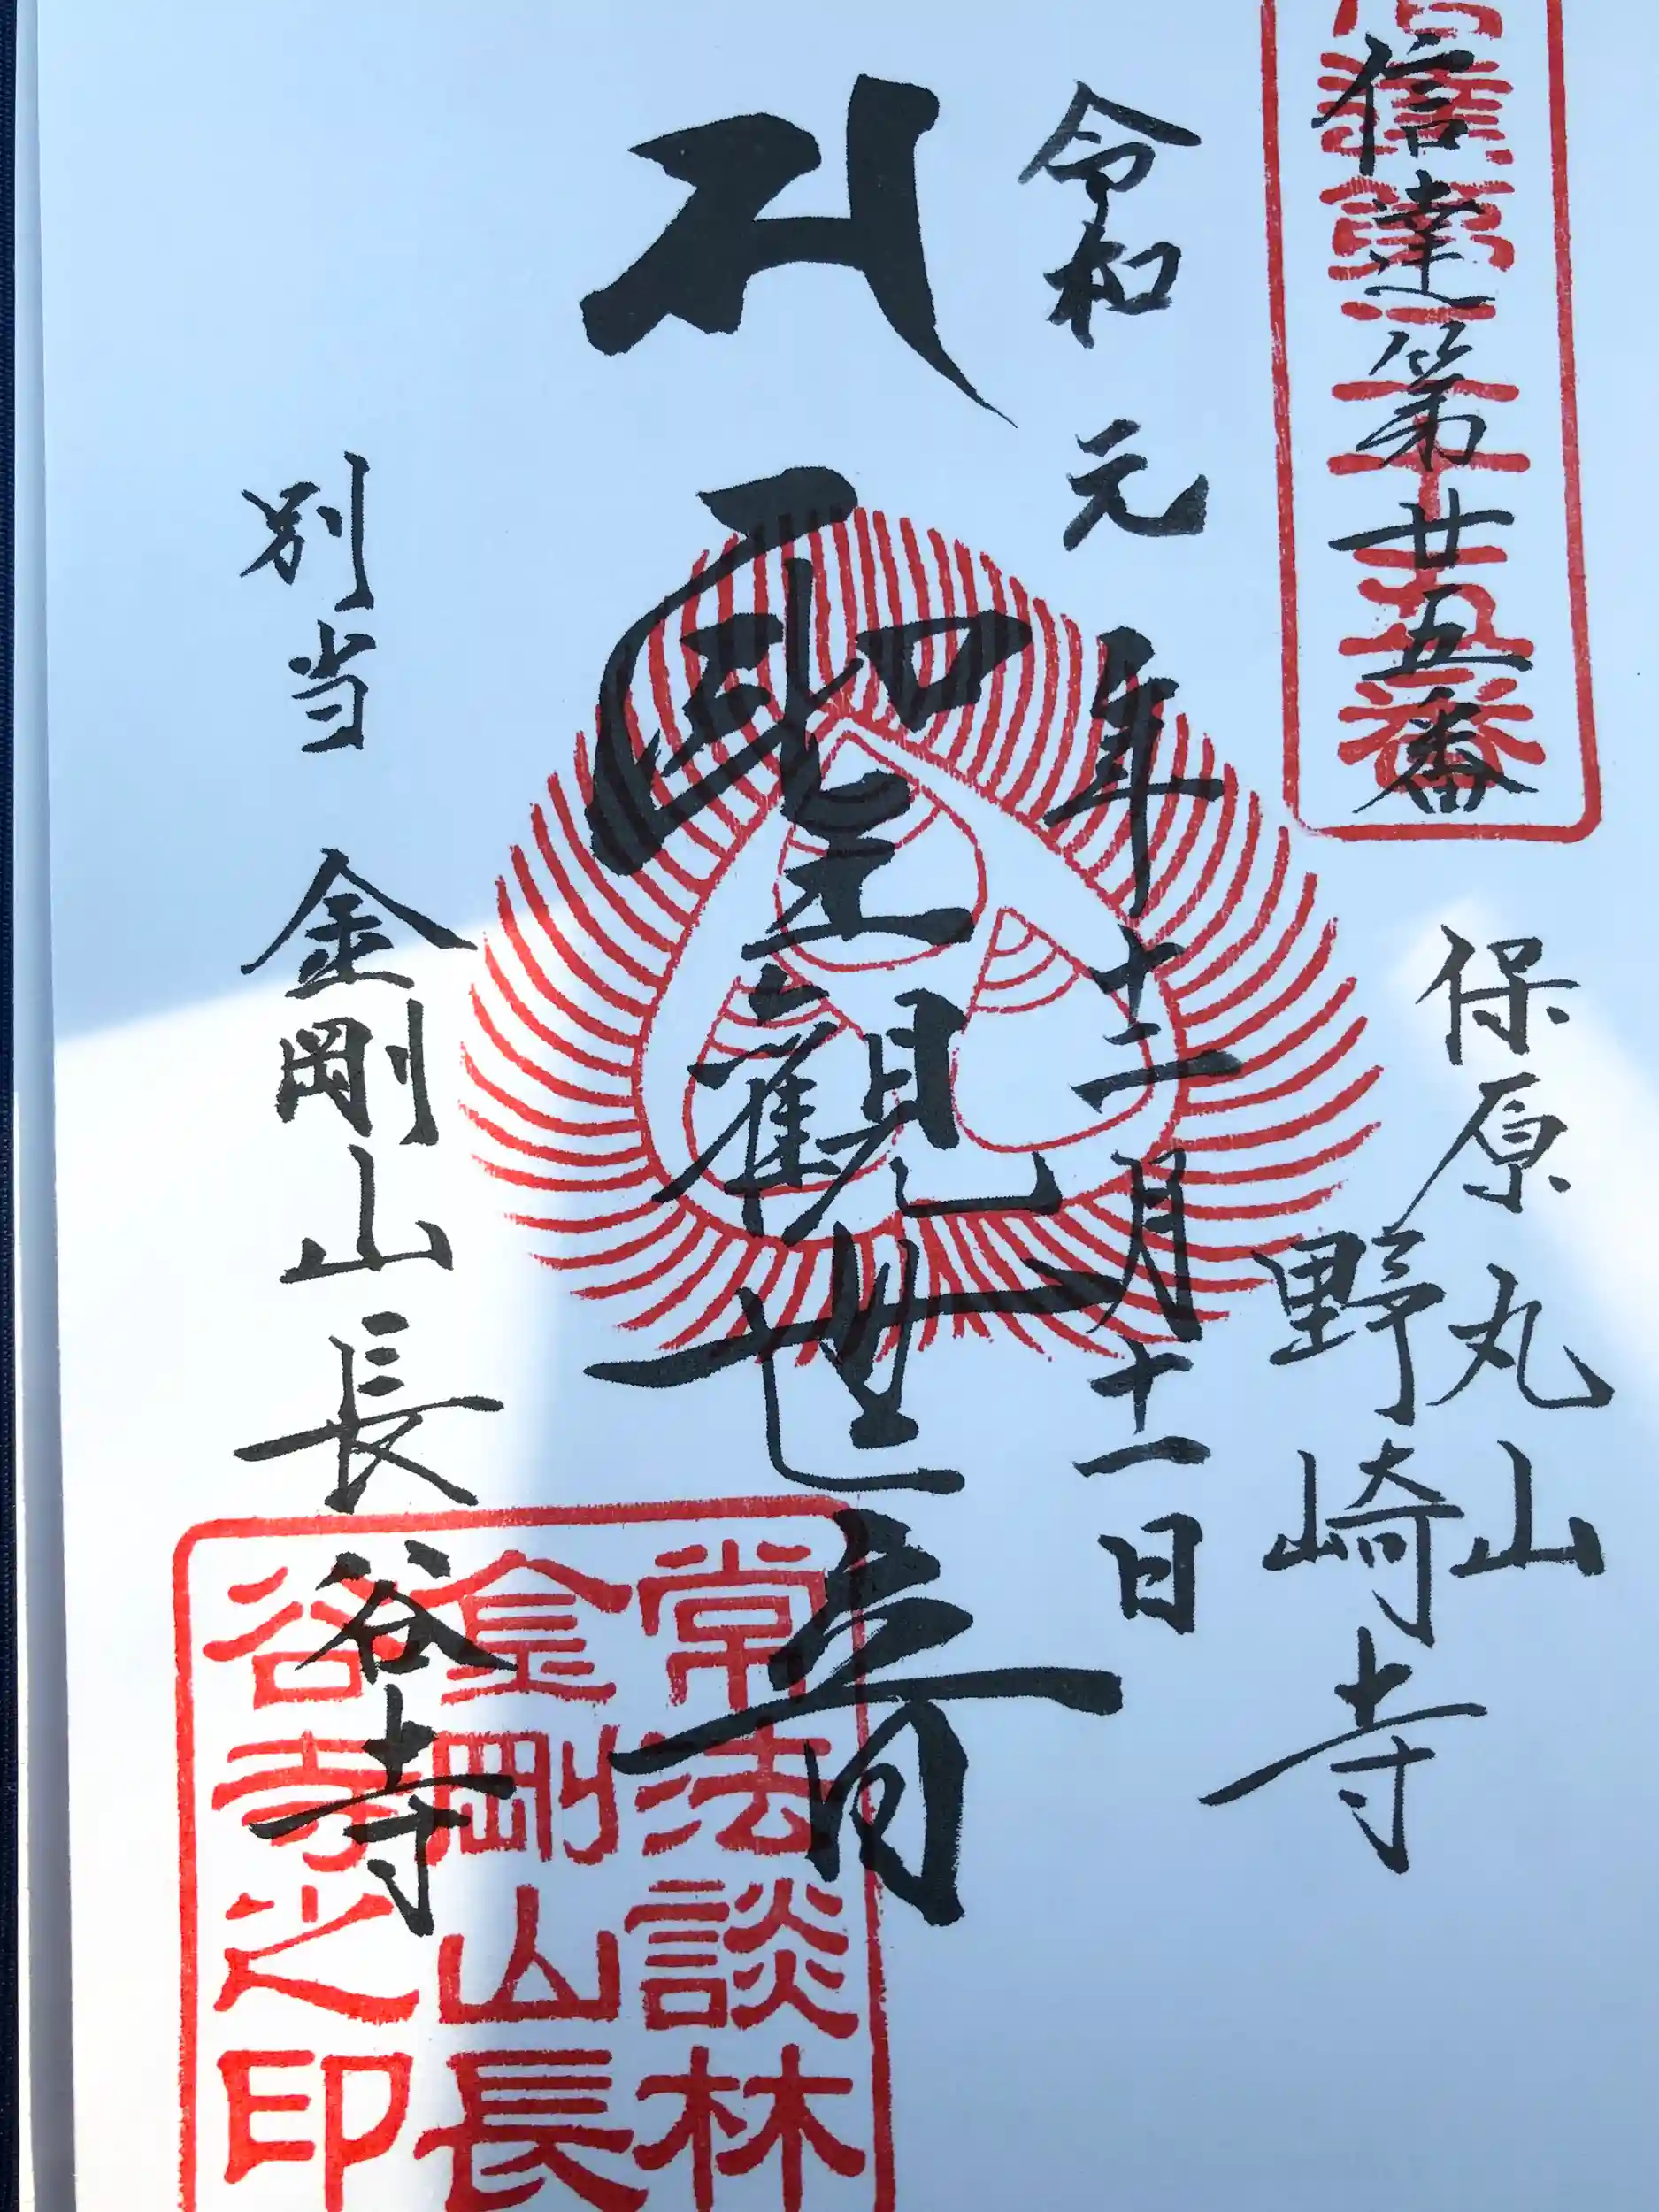 信達第廿五番
保原
丸山
野崎寺
令和元年十二月十一日
聖觀世音
別当 金剛山長谷寺
信達霊
三十五番
常法談林
金剛山長
谷寺之印